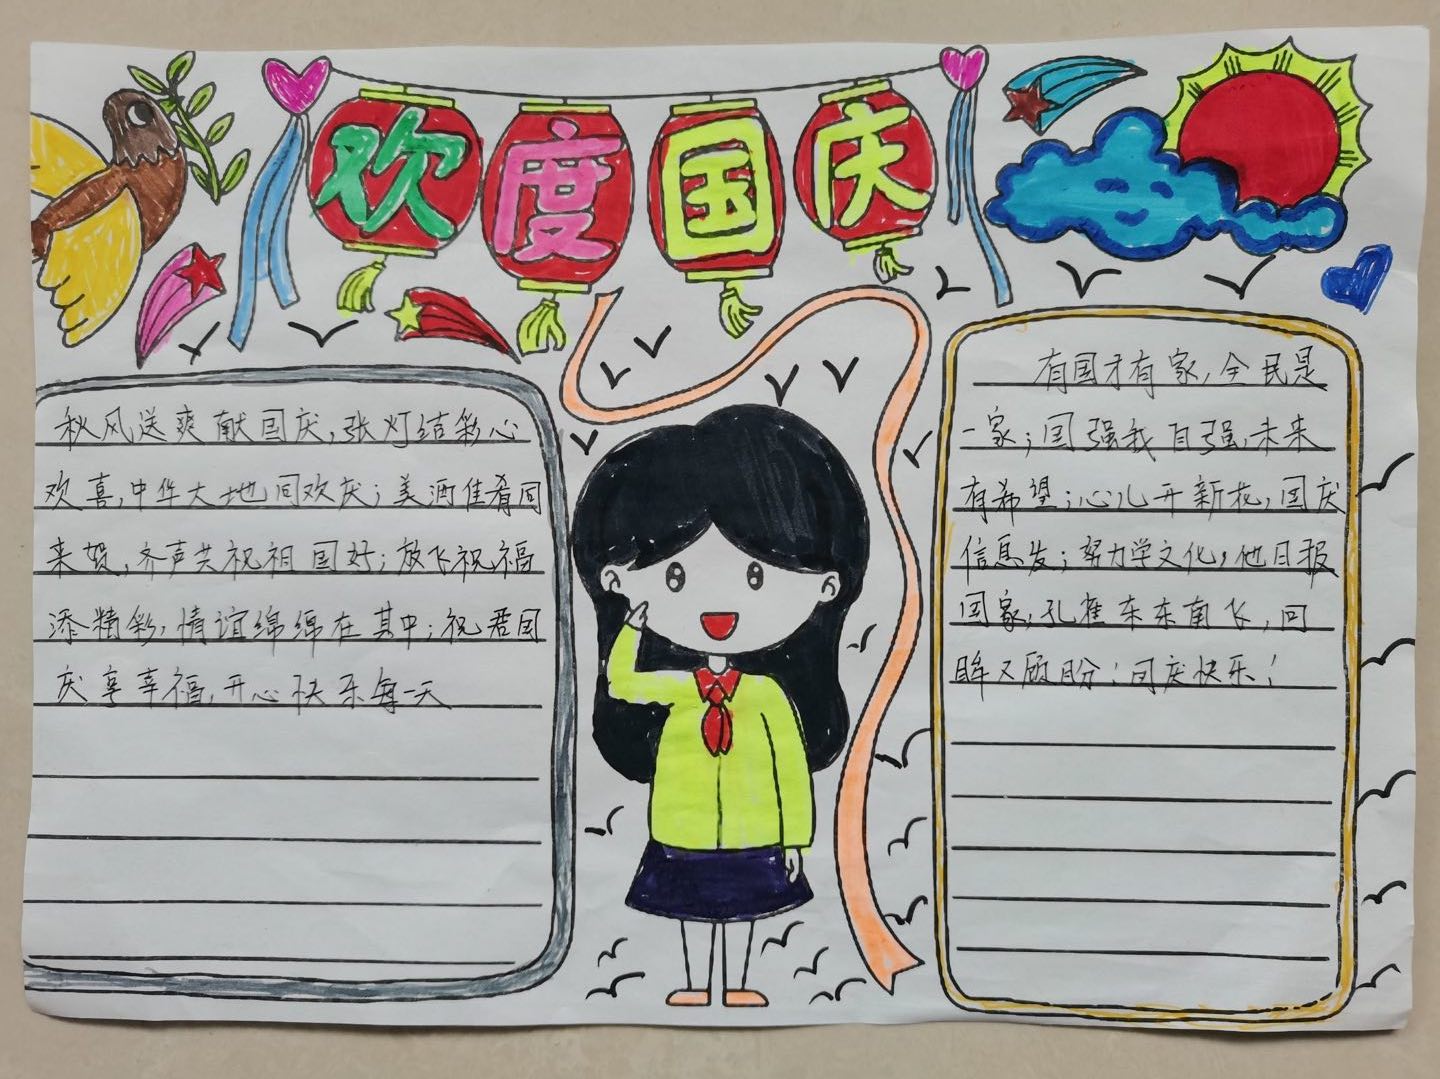 欢度国庆
秋风送爽献国庆，张灯结彩心
欢喜，中华大地同欢庆；美酒佳肴同
来贺，齐声共祝祖国好；放飞祝福
添精彩，情谊绵绵在其中；祝君国
庆享幸福，开心快乐每一天
有国才有家，全民是
一家；国强我自强，未来
有希望；心儿开新花，国庆
信息发；努力学文化，他日报
国家，孔雀东东南飞，回
眸又顾盼；国庆快乐！